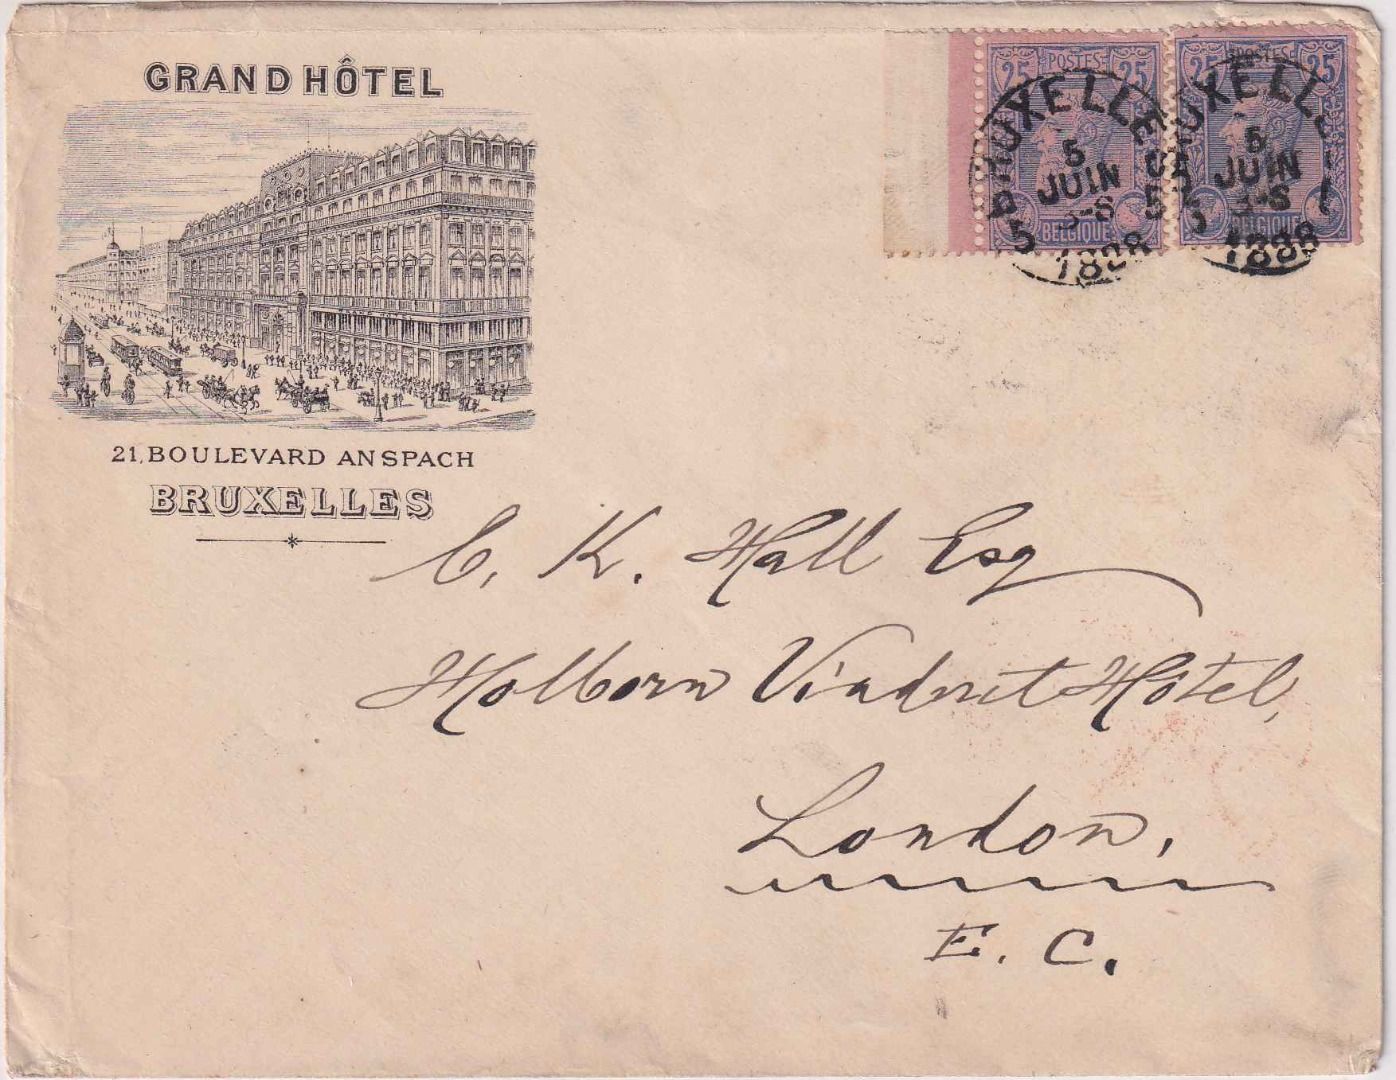 GRAND HÔTEL
21, BOULEVARD ANSPACH
BRUXELLES
25 POSTES 25
BELGIQUE
25 POSTES 25
BELGIQUE
BRUXELLE
5
JUIN
8-S
1888
UXELL
5
JUIN
8-S
1888
C. K. Hall Esq
Holborn Viaduct Hôtel,
London,
E. C.